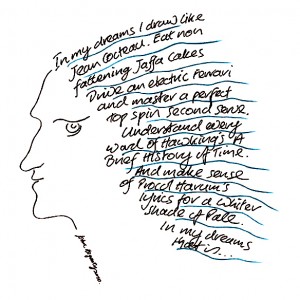 In my dreams I draw like
Jean Cocteau. Eat non
fattening Jaffa Cakes
Drive an electric Ferrari
and master a perfect
top spin second serve.
Understand every
word of Hawking's 'A
Brief History of Time.
And make sense
of Procol Harum's
lyrics for a Whiter
Shade of Pale.
In my dreams
that is...